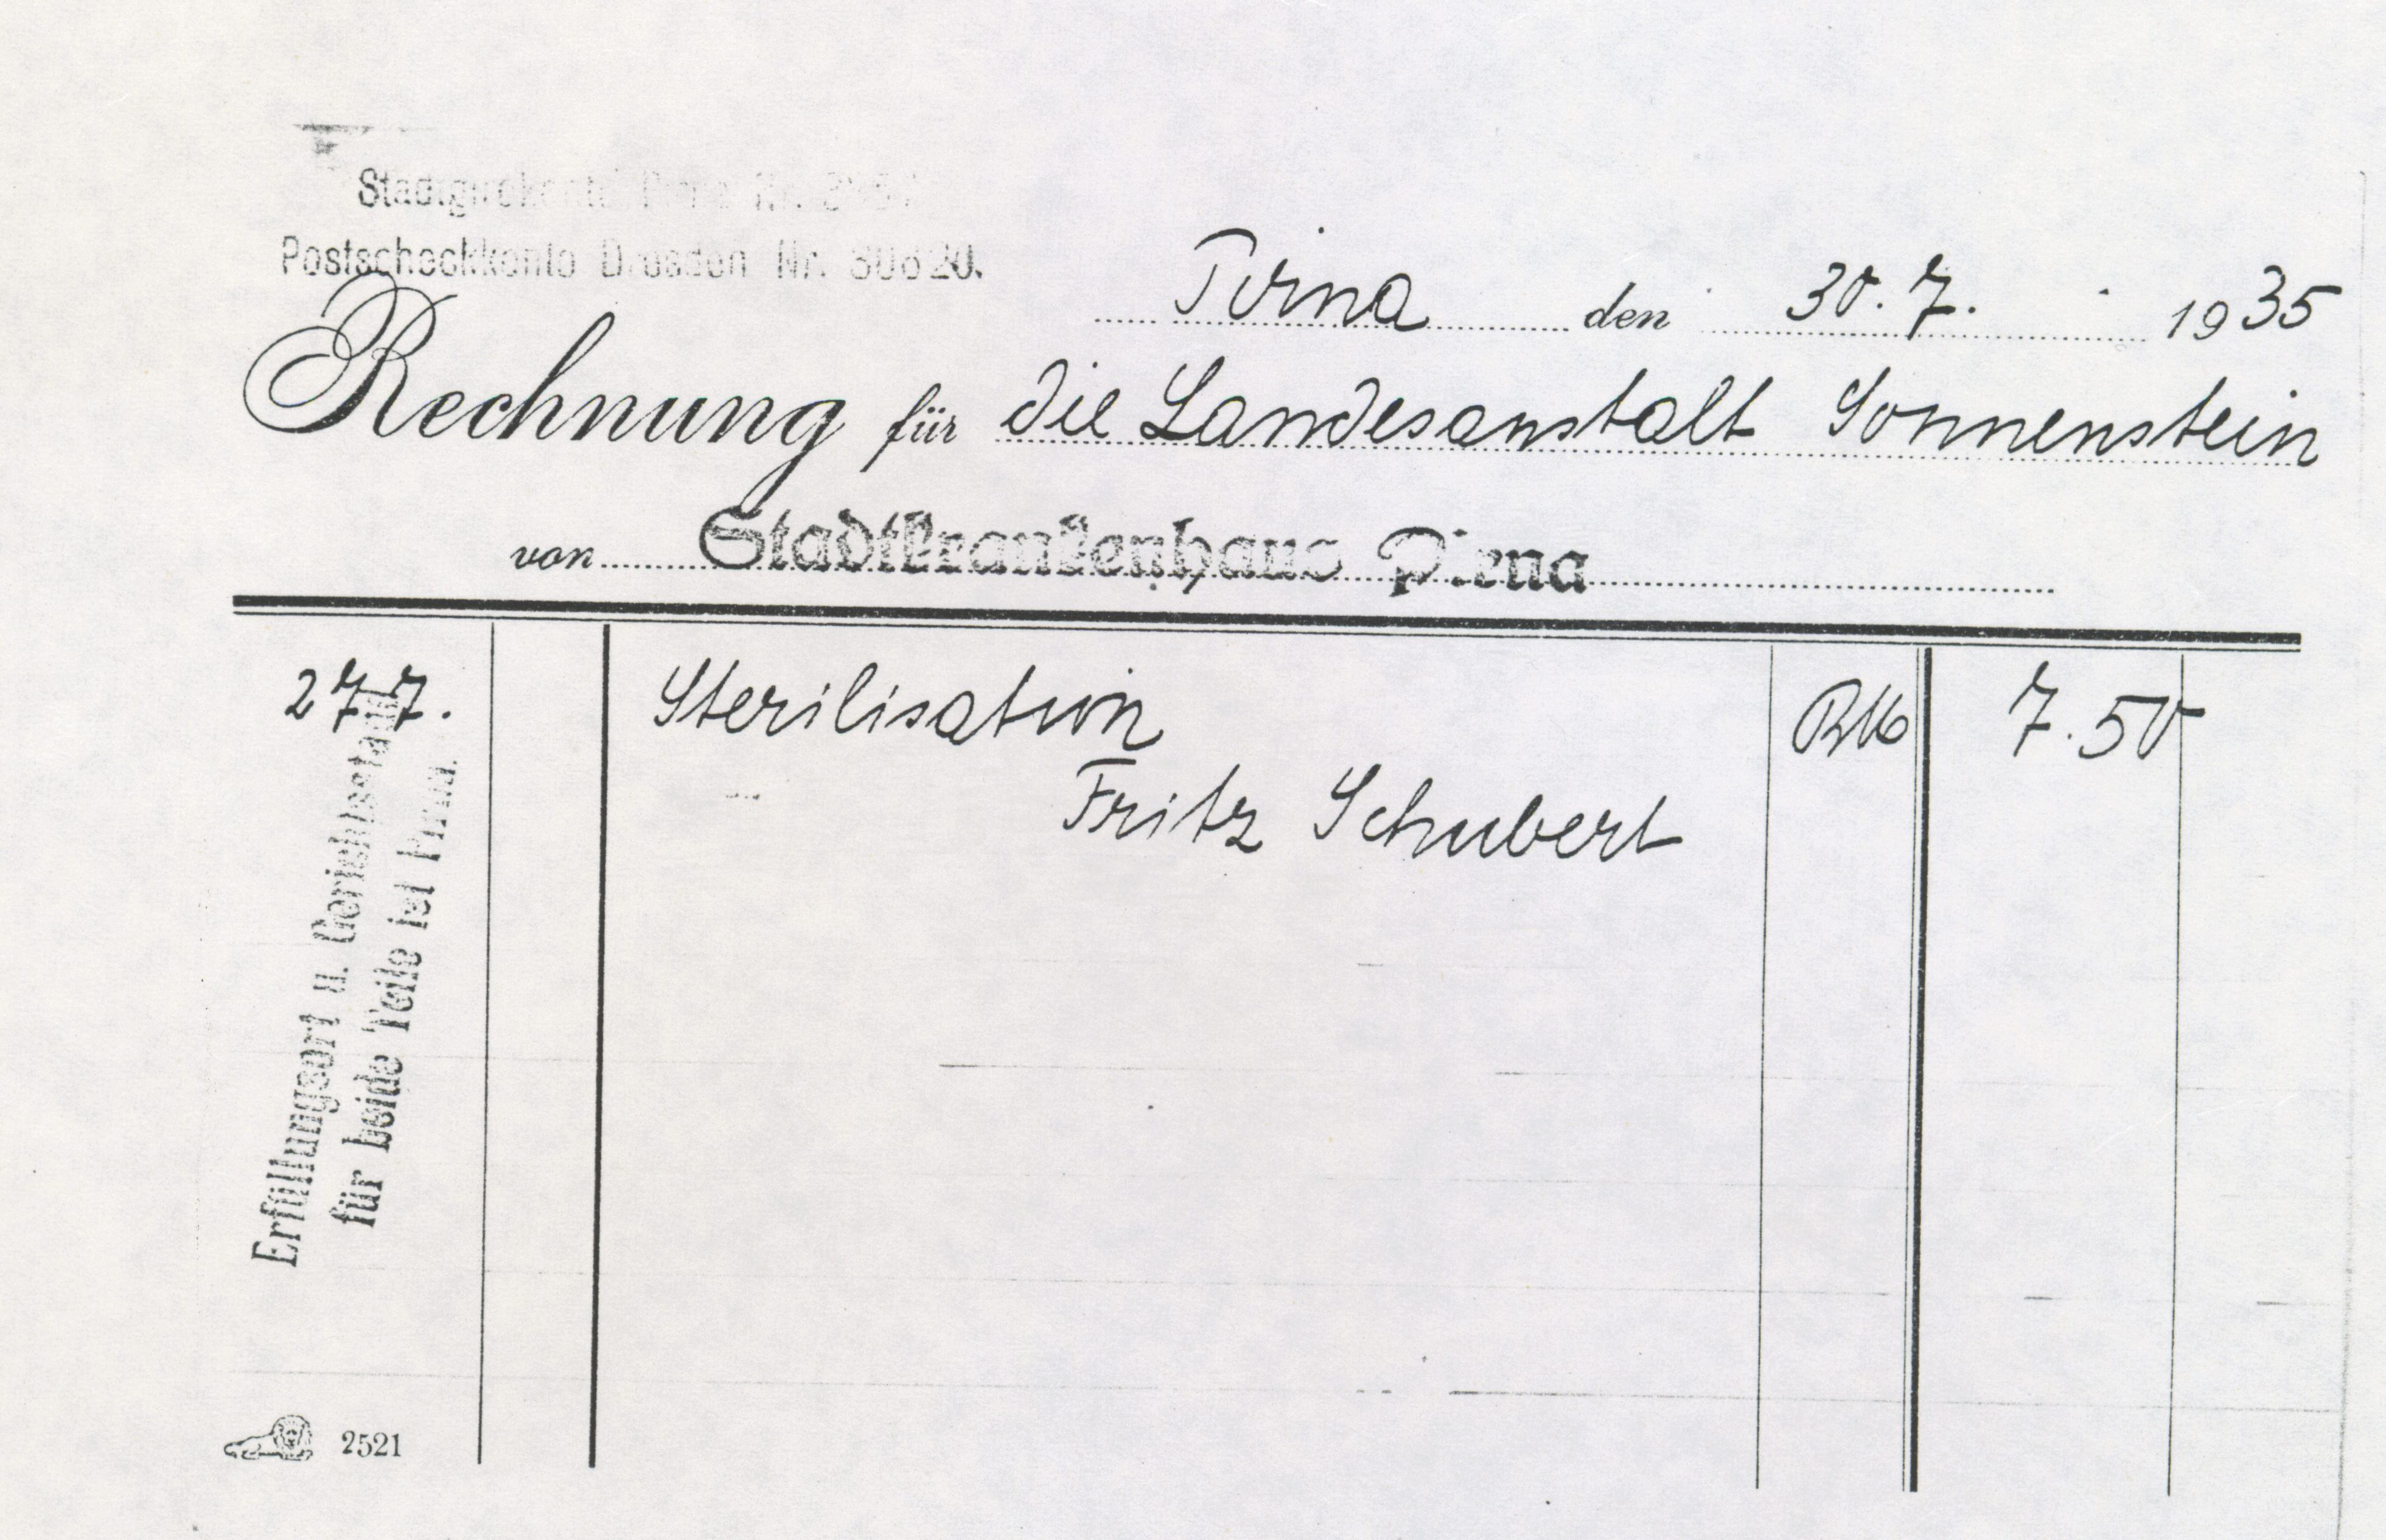 Stadtgirokonto Pirna Nr.
Postscheckkonto Dresden Nr.
Pirna den 30.7. 1935
Rechnung für die Landesanstalt Sonnenstein
von Stadtkrankenhaus Pirna
27.7. Sterilisation RM 7.50
Fritz Schubert
Erfüllungsort u. Gerichtsstand
für beide Teile ist Pirna.
2521